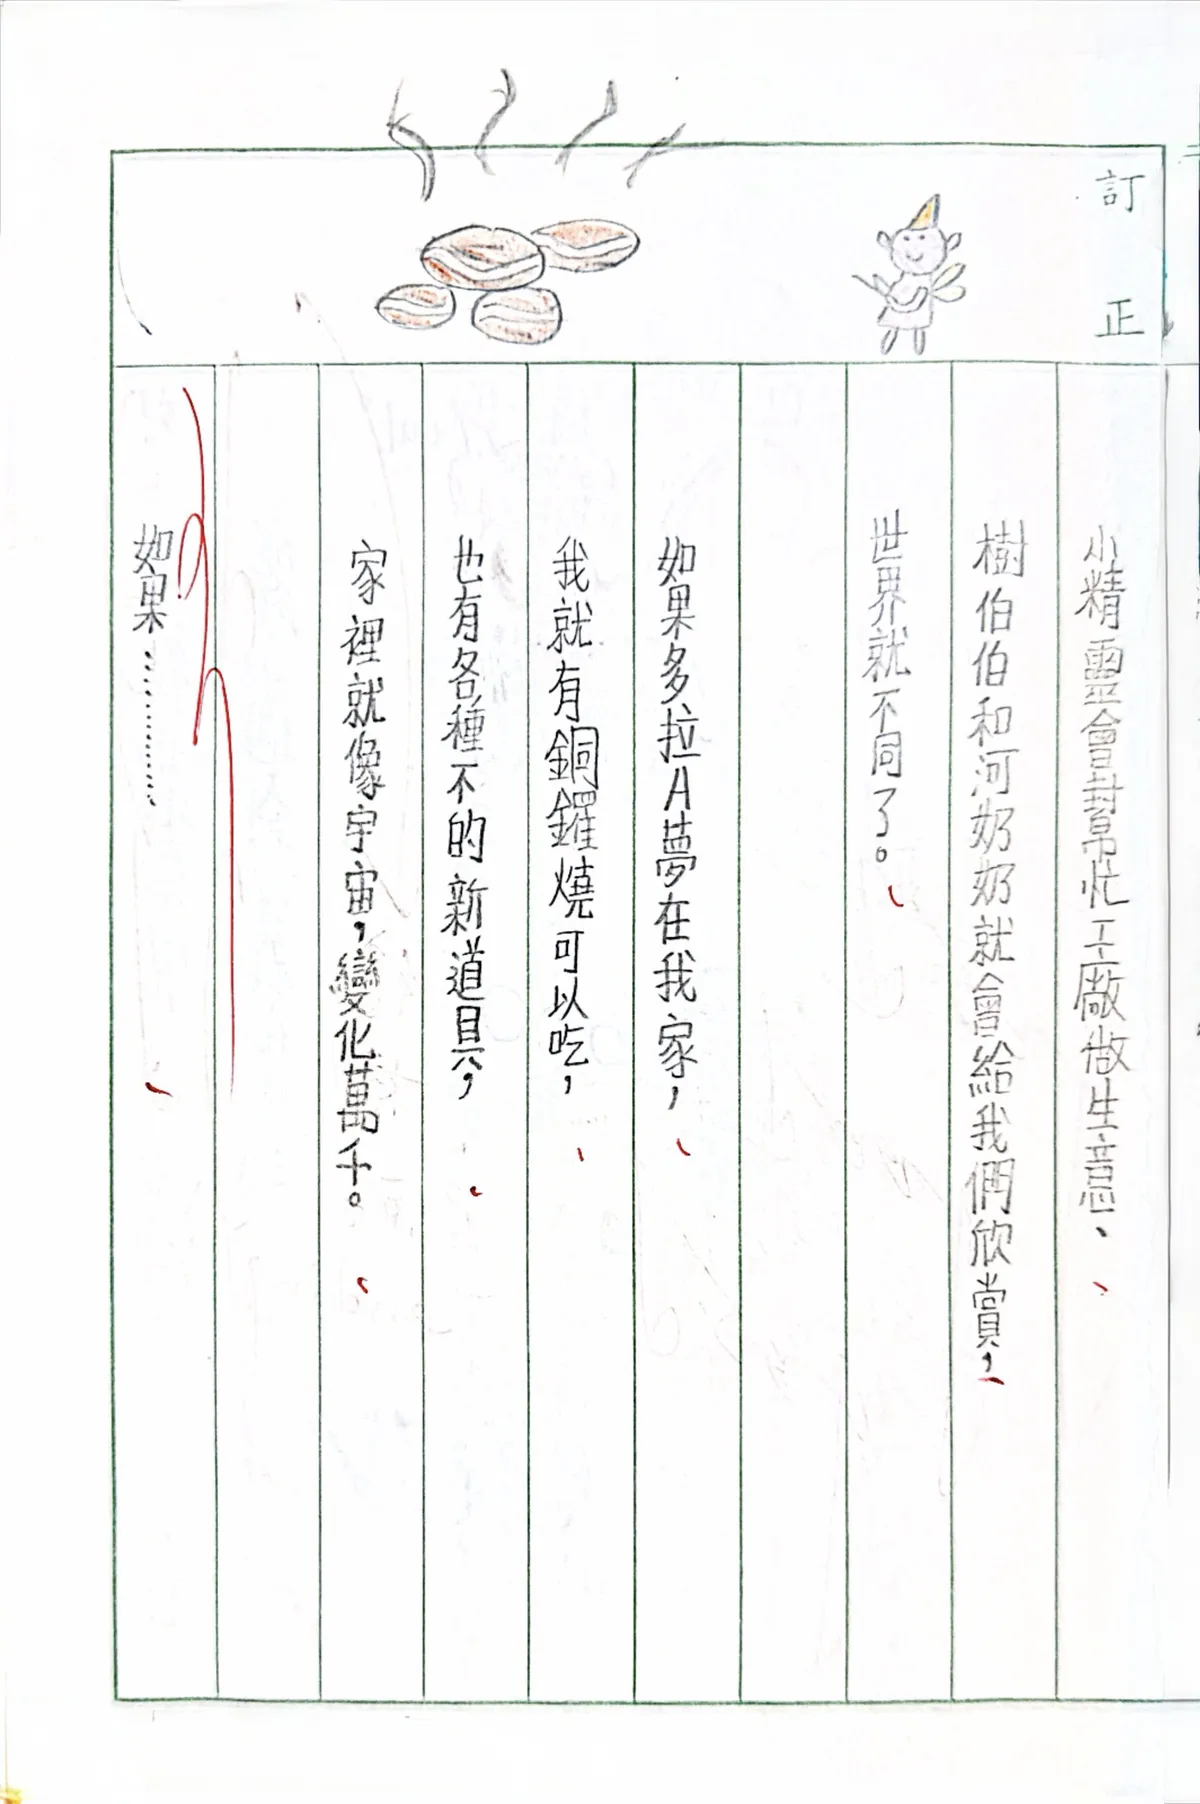 訂正
小精靈會幫忙工廠做生意、
樹伯伯和河奶奶就會給我們欣賞，
世界就不同了。
如果多拉A夢在我家，
我就有銅鑼燒可以吃，
也有各種不的新道具，
家裡就像宇宙，變化萬千。
如果…………